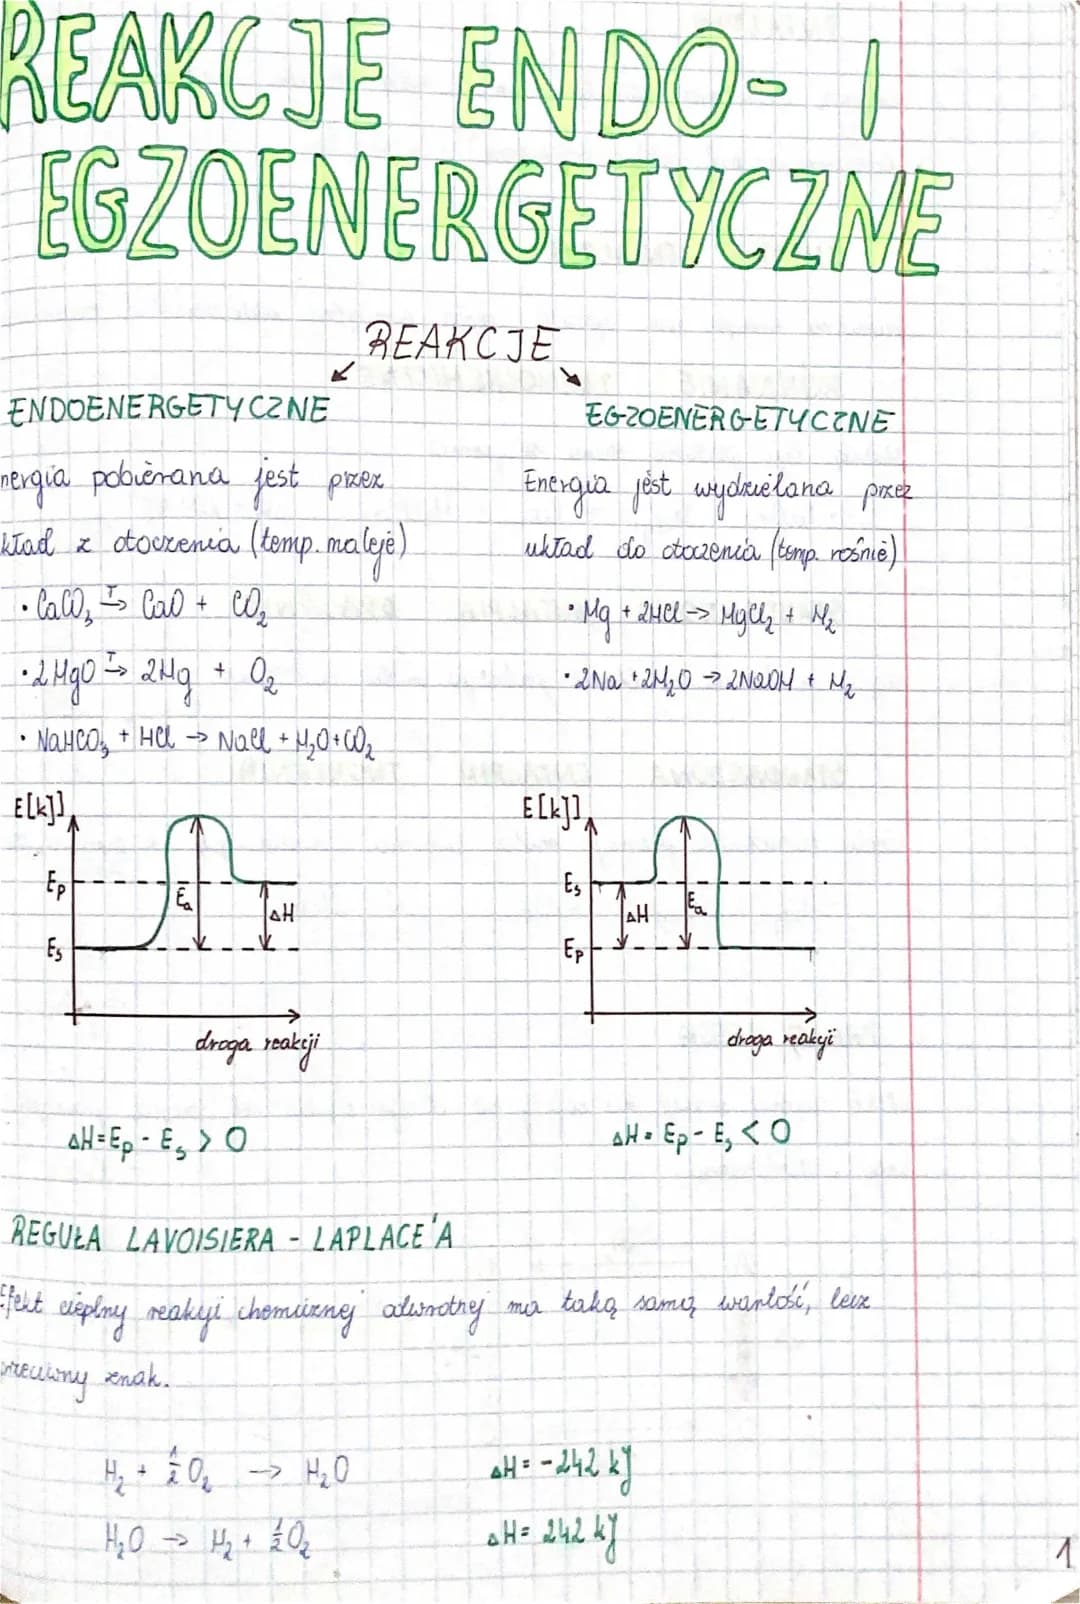 REAKCJE ENDO- I
EGZOENERGETYCZNE
REAKCJE
ENDOENERGETYCZNE
nergia pobierana jest przez
kład z otoczenia (temp. maleje)
• CaCO₃ T→ CaO + CO₂
• 2HgO T→ 2Hg + O₂
• NaHCO₃ + HCl → NaCl + H₂O + CO₂
E[kJ]
Ep
Ea
ΔH
Es
droga reakcji
ΔH = Ep - Es > 0
EGZOENERGETYCZNE
Energia jest wydzielana przez
układ do otoczenia (temp. rośnie)
• Mg + 2HCl → MgCl₂ + H₂
• 2Na + 2H₂O → 2NaOH + H₂
E[kJ]
Es
ΔH
Ea
Ep
droga reakcji
ΔH = Ep - Es < 0
REGUŁA LAVOISIERA - LAPLACE'A
Efekt cieplny reakcji chemicznej odwrotnej ma taką samą wartość, lecz
przeciwny znak.
H₂ + ½ O₂ → H₂O ΔH = -242 kJ
H₂O → H₂ + ½ O₂ ΔH = 242 kJ
1